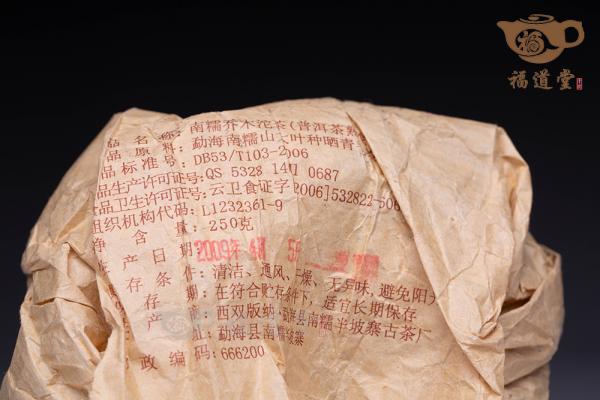 福道堂
品名称: 南糯乔木沱茶(普洱茶熟
品原料: 勐海南糯山大叶种晒青
品标准号: DB53/T103-2006
品生产许可证号: QS 5328 1401 0687
品卫生许可证号: 云卫食证字[2006]532822-506
组织机构代码: L1232361-9
净含量: 250克
生产日期 2009年 4月
存条件: 清洁、通风、干燥、无异味,避免阳光
存期: 在符合贮存条件下,适宜长期保存
产商: 西双版纳·勐海县南糯羊坡寨古茶厂
址: 勐海县南糯坡寨
政编码: 666200